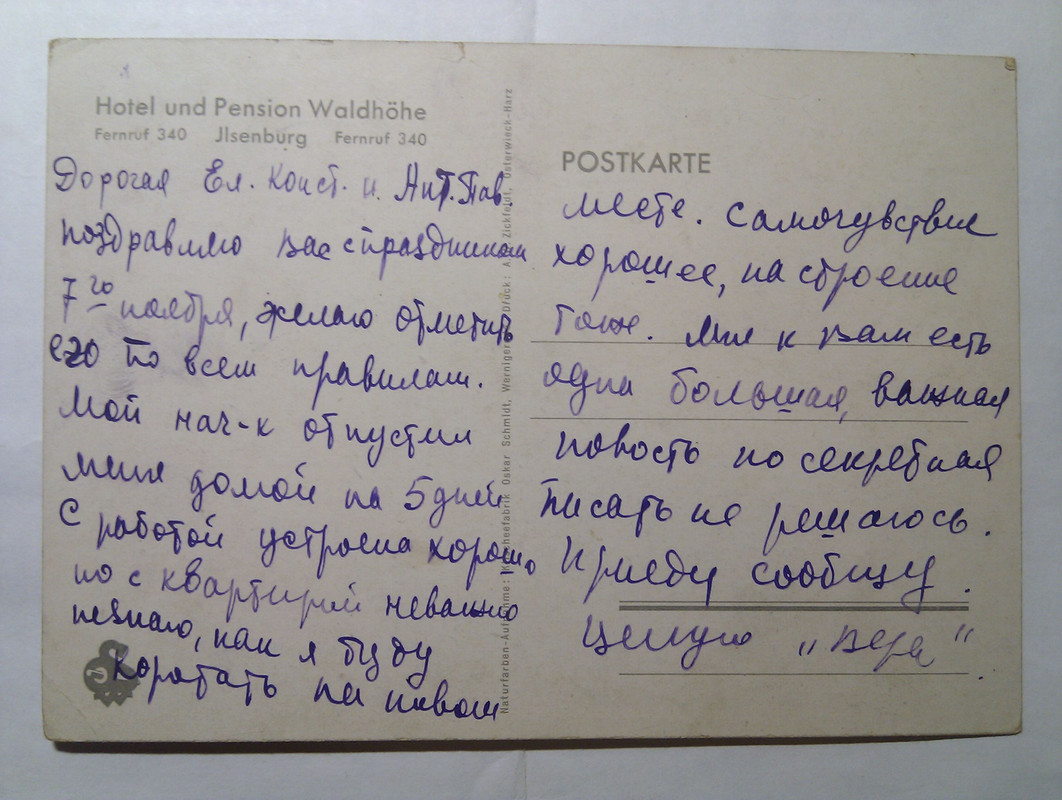 Hotel und Pension Waldhöhe
Fernruf 340 Jlsenburg Fernruf 340
Дорогая Ел. Конст. и. Ант. Пав.
поздравляю вас с праздником
7го ноября, желаю отметить
его по всем правилам.
Мой нач-к отпустил
меня домой на 5 дней
С работой устроена хорошо
но с квартирой неважно
незнаю, как я буду
коротать на новом
Naturfarben-Aufnahme: Oskar Schmidt, Wernigerode Druck: A. W. Zickfeldt, Osterwieck-Harz
POSTKARTE
месте. Самочувствие
хорошее, настроение
тоже. Мне к вам есть
одна большая, важная
новость но секретная
писать не решаюсь.
Приеду сообщу.
Целую „Вера“.